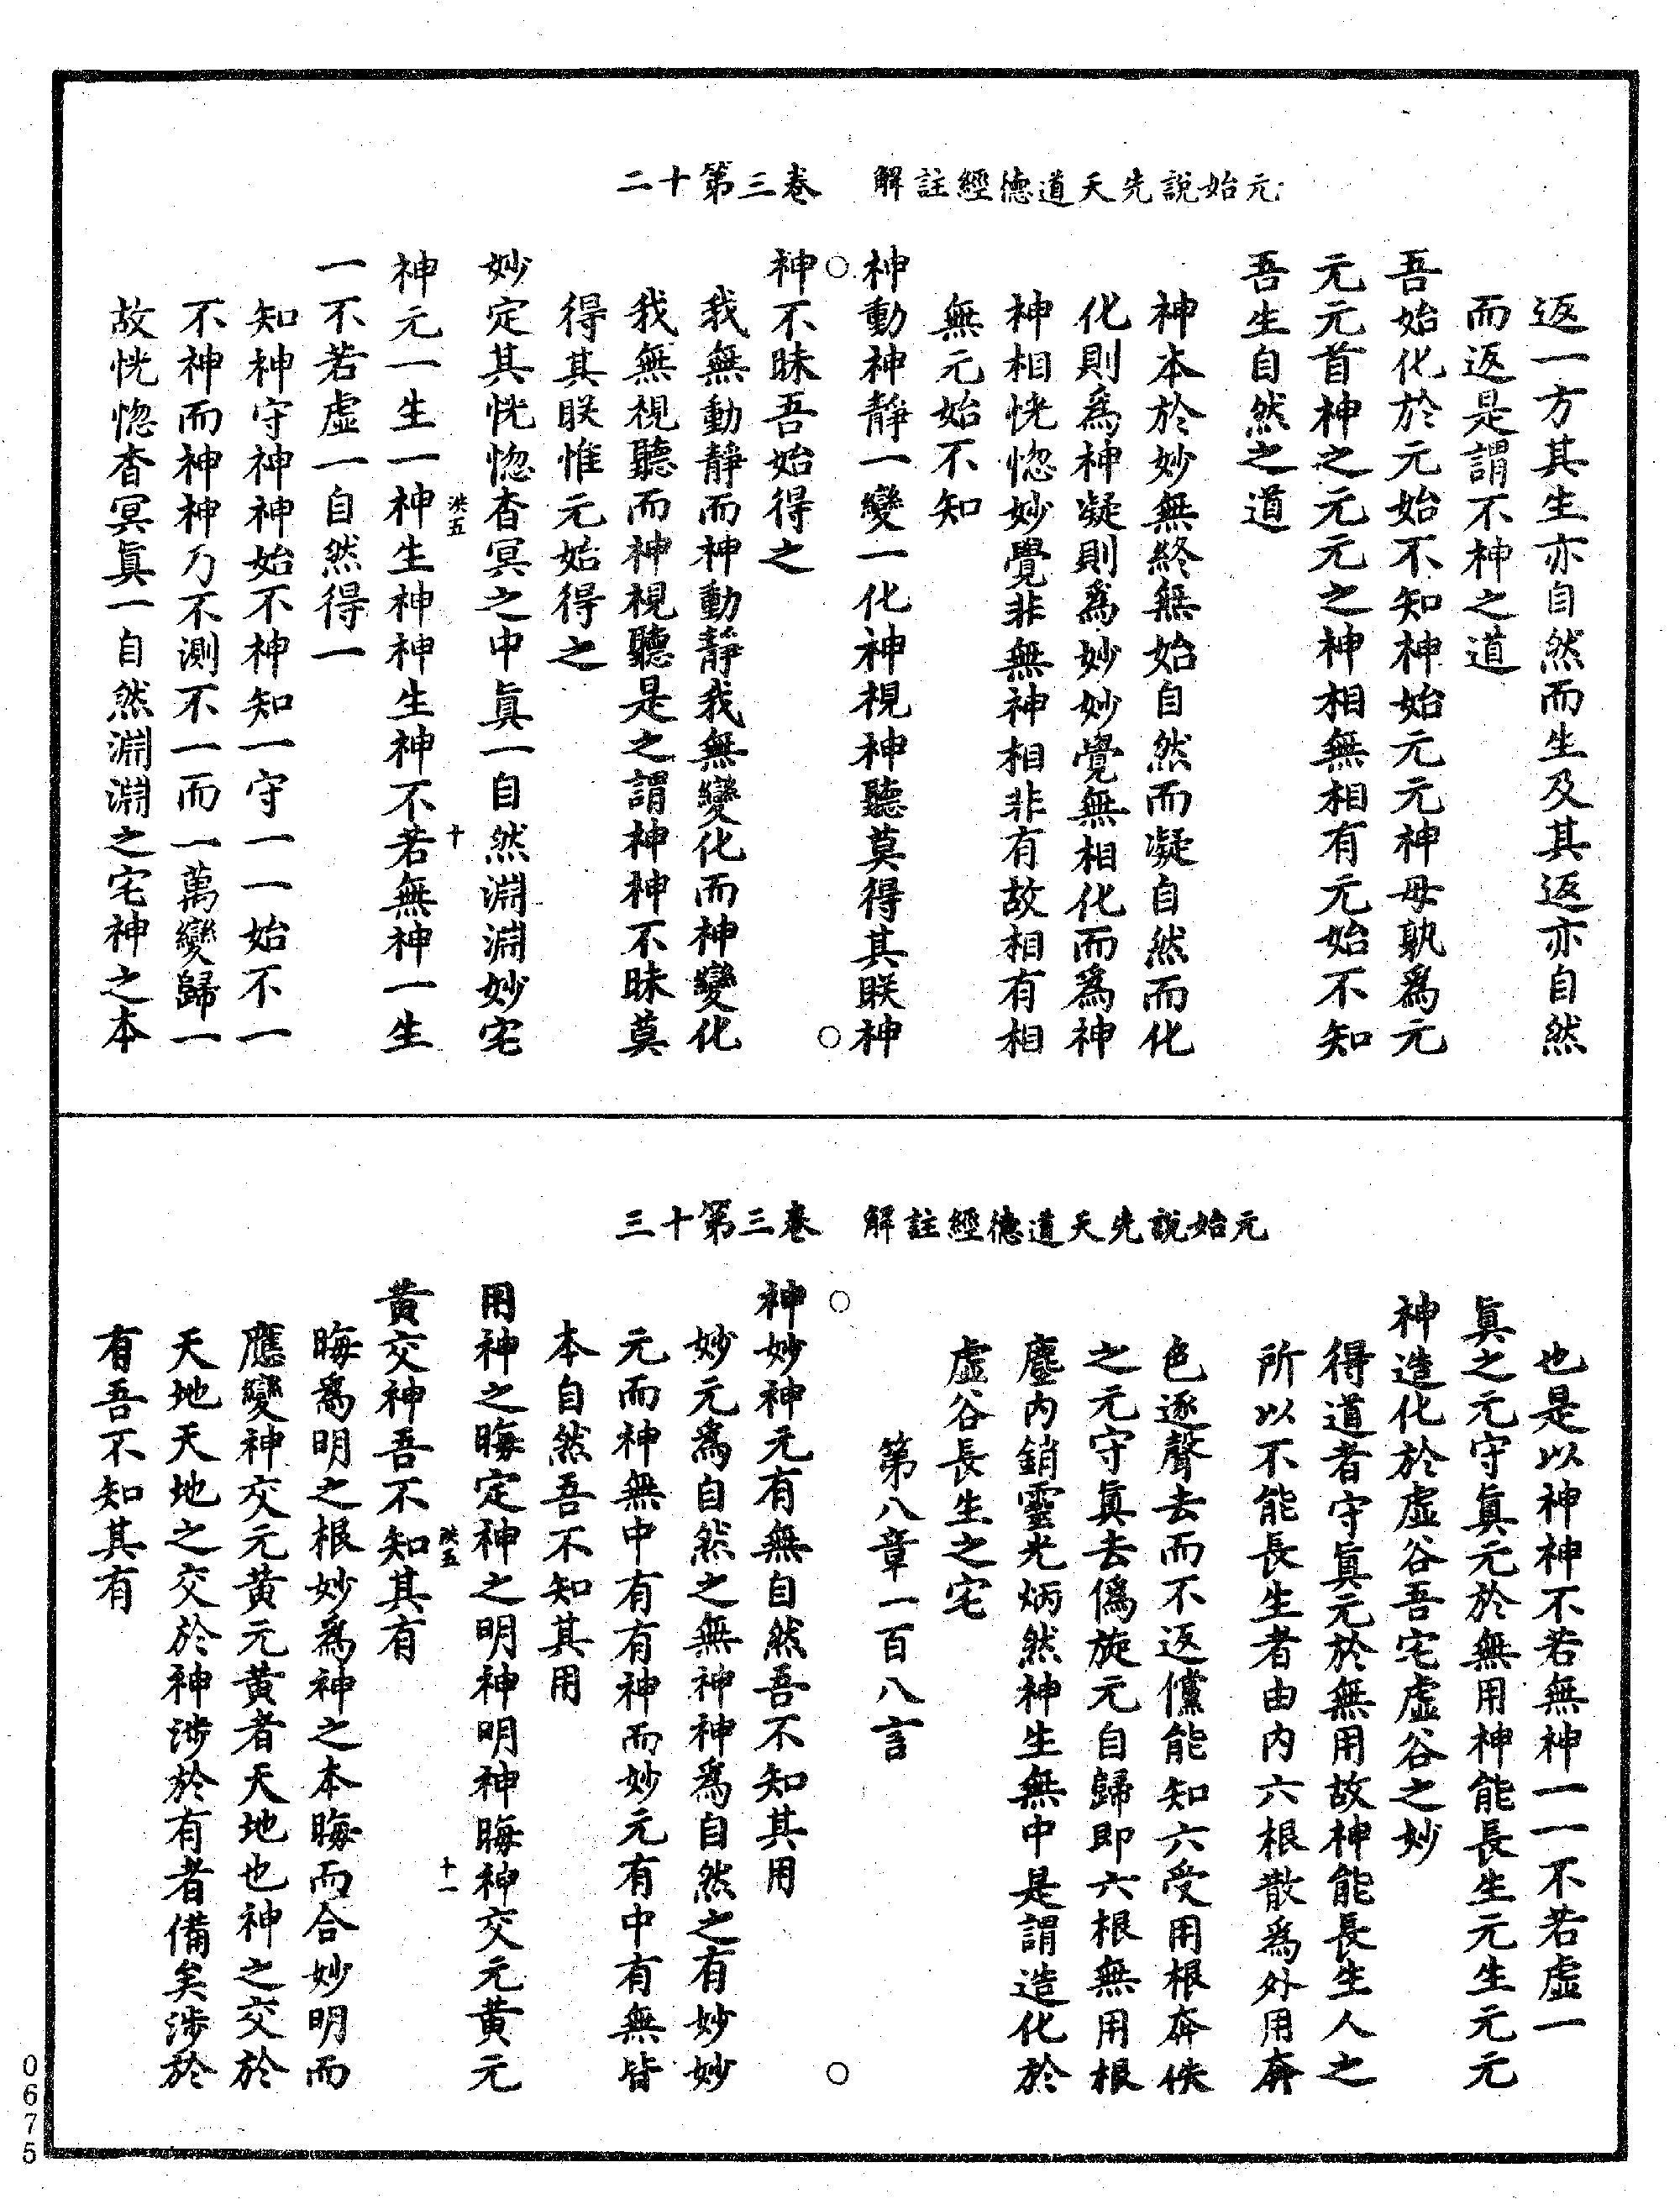 元始說先天道德經註解　卷三第十二
返一方其生亦自然而生及其返亦自然
而返是謂不神之道
吾始化於元始不知神始元元神母孰爲元
元元首神之元元元之神相無相有元始不知
吾生自然之道
神本於妙無終無始自然而凝自然而化
化則爲神凝則爲妙妙覺無相化而爲神
神相恍惚妙覺非無神相非有故相有相
無元始不知
神動神靜一變一化神視神聽莫得其眹神
○　○
神不昧吾始得之
我無動靜而神動靜我無變化而神變化
我無視聽而神視聽是之謂神神不昧莫
得其眹惟元始得之
妙定其恍惚杳冥之中眞一自然淵淵妙宅
洪五　十
神元一生一神生神神生神不若無神一生
一不若虛一自然得一
知神守神神始不神知一守一一始不一
不神而神神乃不測不一而一萬變歸一
故恍惚杳冥眞一自然淵淵之宅神之本
元始說先天道德經註解　卷三第十三
也是以神神不若無神一一不若虛一
眞之元守眞元於無用神能長生元生元元
神造化於虛谷吾宅虛谷之妙
得道者守眞元於無用故神能長生人之
所以不能長生者由內六根散爲外用奔
色逐聲去而不返儻能知六受用根奔佚
之元守眞去僞旋元自歸即六根無用根
塵內銷靈光炳然神生無中是謂造化於
虛谷長生之宅
第八章一百八言
○　○
神妙神元有無自然吾不知其用
妙元爲自然之無神神爲自然之有妙妙
元而神無中有有神而妙元有中有無皆
本自然吾不知其用
用神之晦定神之明神明神晦神交元黃元
洪五　十一
黃交神吾不知其有
晦爲明之根妙爲神之本晦而合妙明而
應變神交元黃元黃者天地也神之交於
天地天地之交於神涉於有者備矣涉於
有吾不知其有
0675